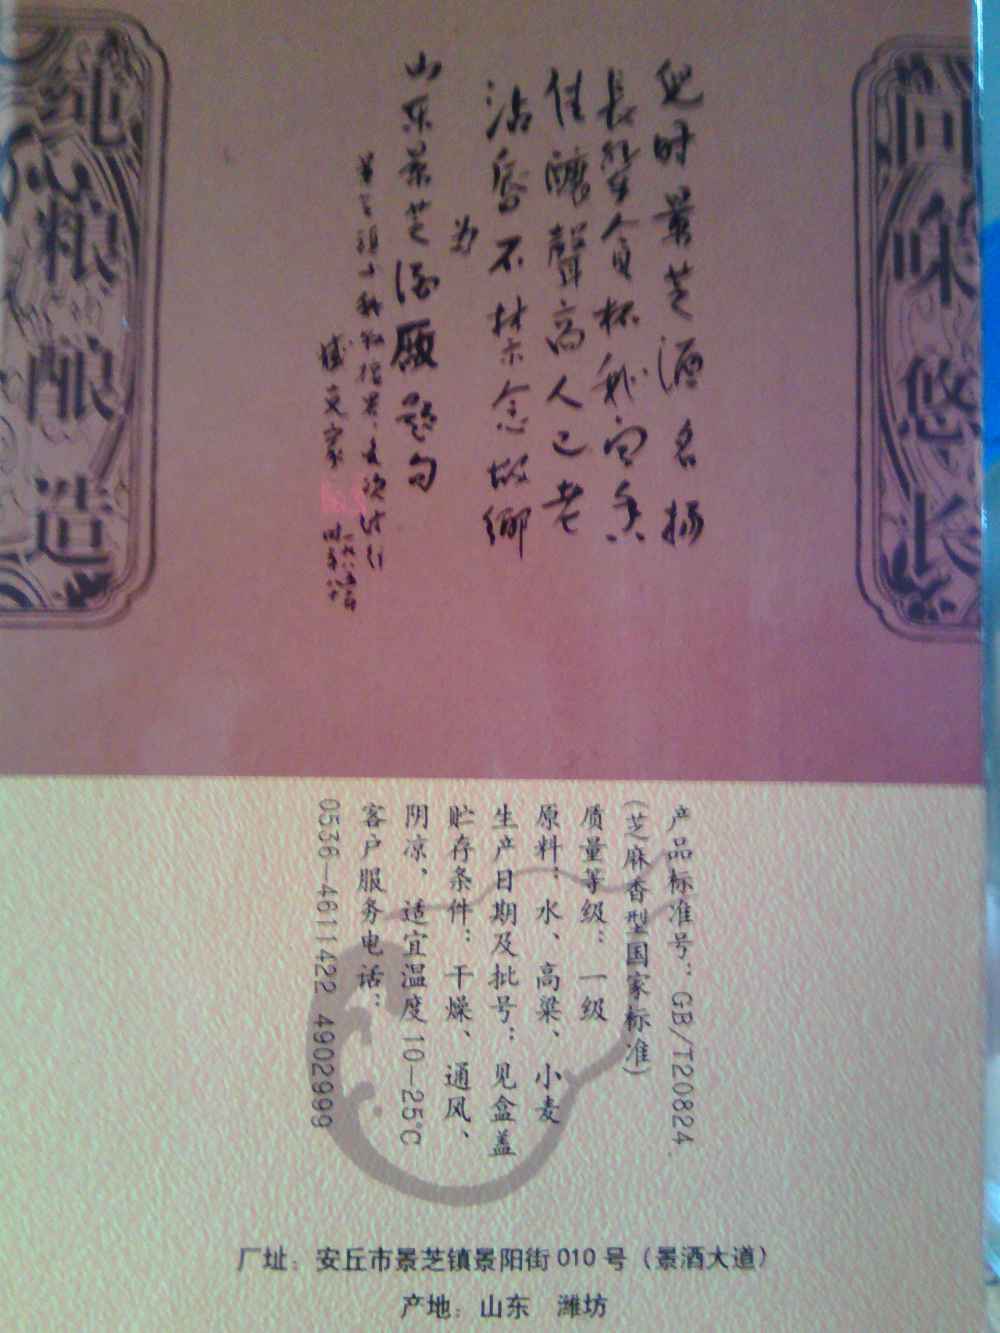 回味悠长
儿时景芝酒名扬
長輩人負杯我聞香
佳釀聲高人已老
沾唇不禁念故鄉
为
山东景芝酒廠題句
臧克家
纯粮酿造
产品标准号：GB/T20824
(芝麻香型国家标准)
质量等级：一级
原料：水、高粱、小麦
生产日期及批号：见盒盖
贮存条件：干燥、通风、
阴凉，适宜温度10—25℃
客户服务电话：
0536—4611422 4902999
厂址：安丘市景芝镇景阳街010号（景酒大道）
产地：山东 潍坊